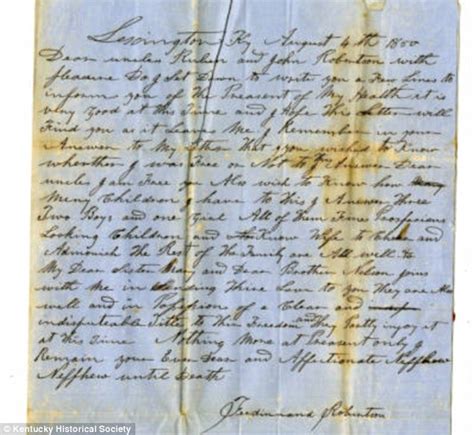 Lexington Ky August 4th 1850
Dear uncles Reuben and John Robertson with
pleasure Do I Set Down to write you a Few Lines to
inform you of the Preasent of My Health it is
very Good at this Time and I Hope This Letter will
Find you as it Leaves Me I Remember in your
Answer to My Letter That you wished to Know
wheather I was Free or Not to Answer Dear
uncles I am Free you Also wish to Know how
Meny Children I have to This I Answer Three
Two Boys and one Girl All of Them Fine
Looking Children and Know Wife to and
Admonish The Rest of The Family are All well
My Dear Sister Mary and Dear Brother Nelson joins
with Me in Sending Thire Love to you They are Also
well and in Possesion of a Clear and
indisputeable Title to Thire Freedom and They injoy it
at this Time Nothing More at Preasent only I
Remain your Ever Dear and Affectionate Neffhew
Neffhew until Death
Ferdinnand Robertson
© Kentucky Historical Society